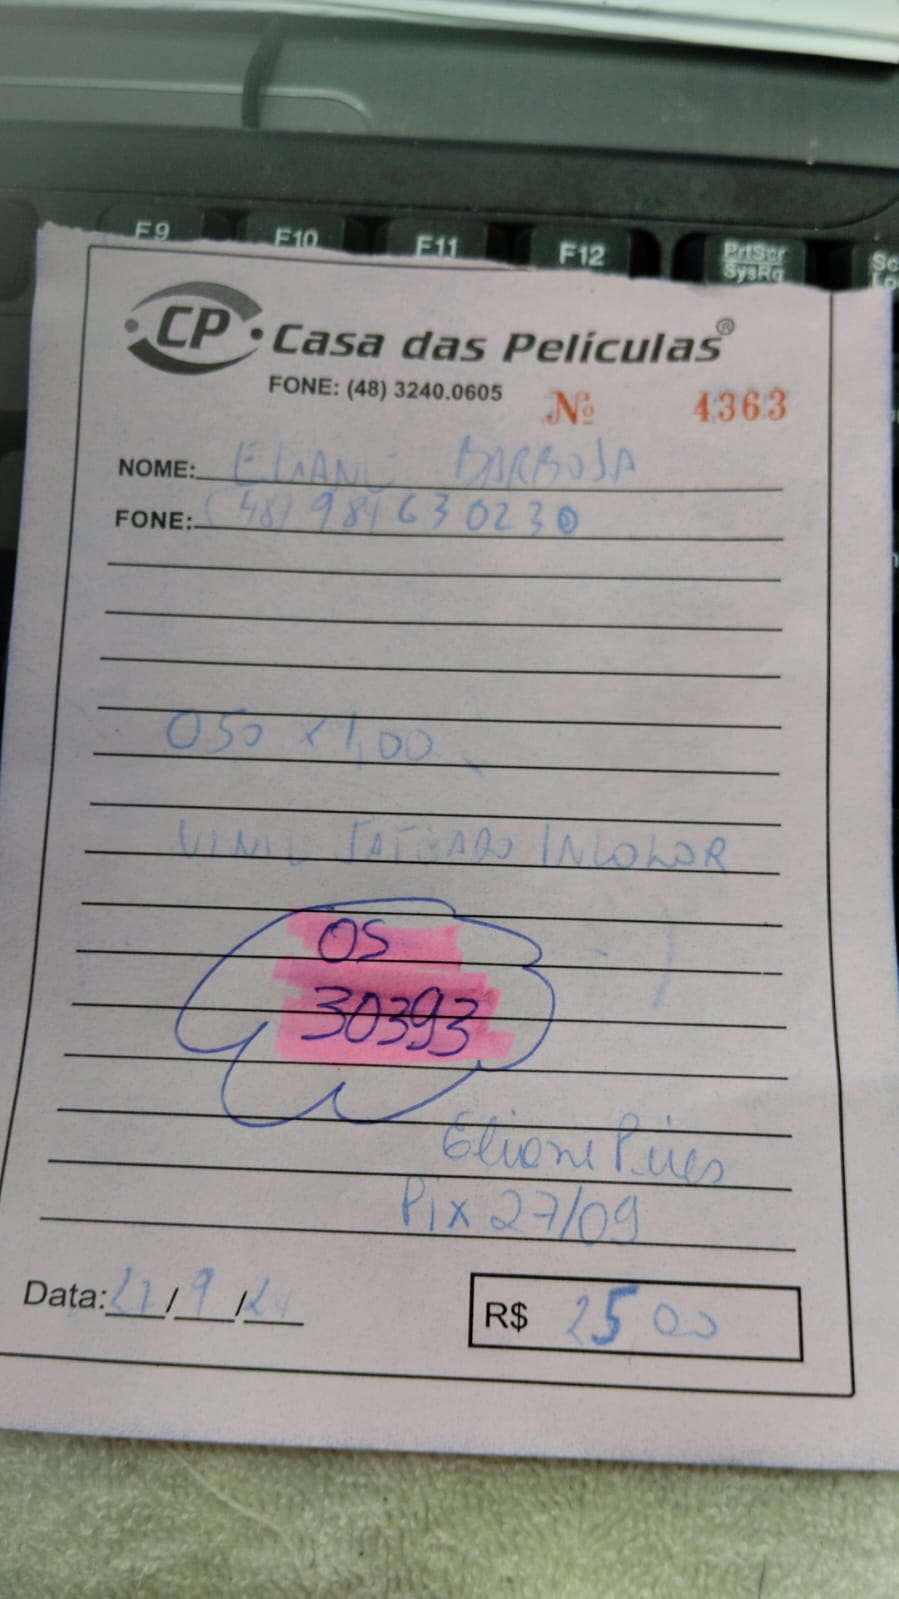 F9 F10 F11 F12 PrtScr Sc
SysRq Lo
CP Casa das Películas®
FONE: (48) 3240.0605 Nº 4363
NOME: ELIANE BARBOSA
FONE: (48) 984630230
050 x 1,00
VINIL JATEADO INCOLOR
OS
30393
Eliane Pires
Pix 27/09
Data: 27/9/24 R$ 25,00